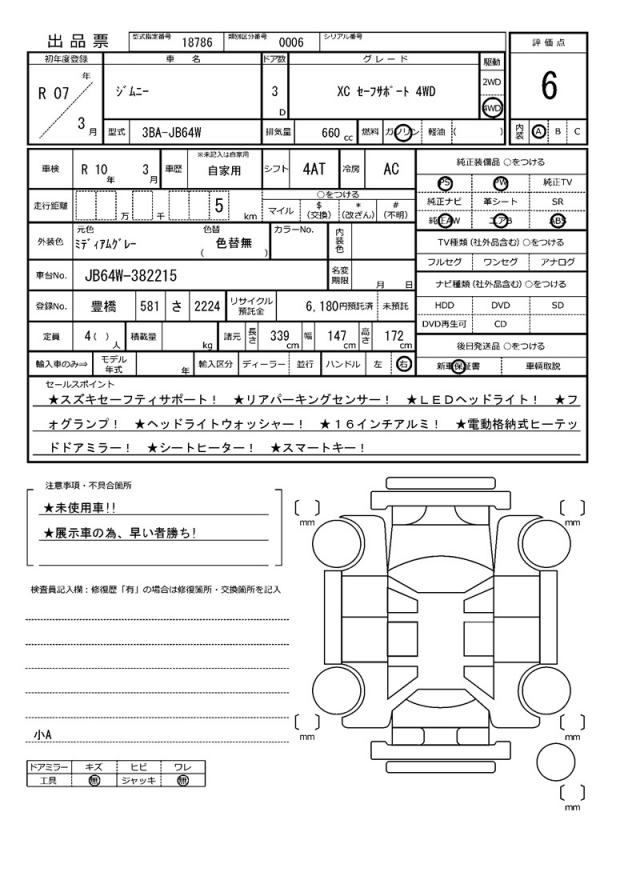 出品票 型式指定番号 18786 類別区分番号 0006 シリアル番号
評価点
6
初年度登録 車名 ドア数 グレード 駆動
R 07 年 3 月
ｼﾞﾑﾆｰ
3 D
XC ｾｰﾌｻﾎﾟｰﾄ 4WD
2WD
4WD
型式 3BA-JB64W 排気量 660 cc 燃料 ガソリン 軽油 ( )
内装 A B C
車検 R 10 年 3 月 車歴 ※未記入は自家用 自家用 シフト 4AT 冷房 AC
走行距離 万 千 5 km
○をつける
マイル $ (交換) * (改ざん) # (不明)
外装色 元色 ﾐﾃﾞｨｱﾑｸﾞﾚｰ 色替 ( 色替無 ) カラーNo. 内装色
車台No. JB64W-382215 名変期限 月 日
登録No. 豊橋 581 さ 2224 リサイクル預託金 6,180円預託済 未預託
定員 4 ( ) 人 積載量 kg 諸元 長さ 339 cm 幅 147 cm 高さ 172 cm
輸入車のみ⇒ モデル年式 年 輸入区分 ディーラー 並行 ハンドル 左 右
純正装備品 ○をつける
PS PW 純正TV
純正ナビ 革シート SR
純正AW エアB ABS
TV種類 (社外品含む) ○をつける
フルセグ ワンセグ アナログ
ナビ種類 (社外品含む) ○をつける
HDD DVD SD
DVD再生可 CD
後日発送品 ○をつける
新車保証書 車輌取説
セールスポイント
★スズキセーフティサポート！ ★リアパーキングセンサー！ ★ＬＥＤヘッドライト！ ★フ
ォグランプ！ ★ヘッドライトウォッシャー！ ★１６インチアルミ！ ★電動格納式ヒーテッ
ドドアミラー！ ★シートヒーター！ ★スマートキー！
注意事項・不具合箇所
★未使用車!!
★展示車の為、早い者勝ち!
検査員記入欄：修復歴「有」の場合は修復箇所・交換箇所を記入
小A
ドアミラー キズ ヒビ ワレ
工具 無 ジャッキ 無
[ ] mm
[ ] mm
[ ] mm
[ ] mm
[ ] mm